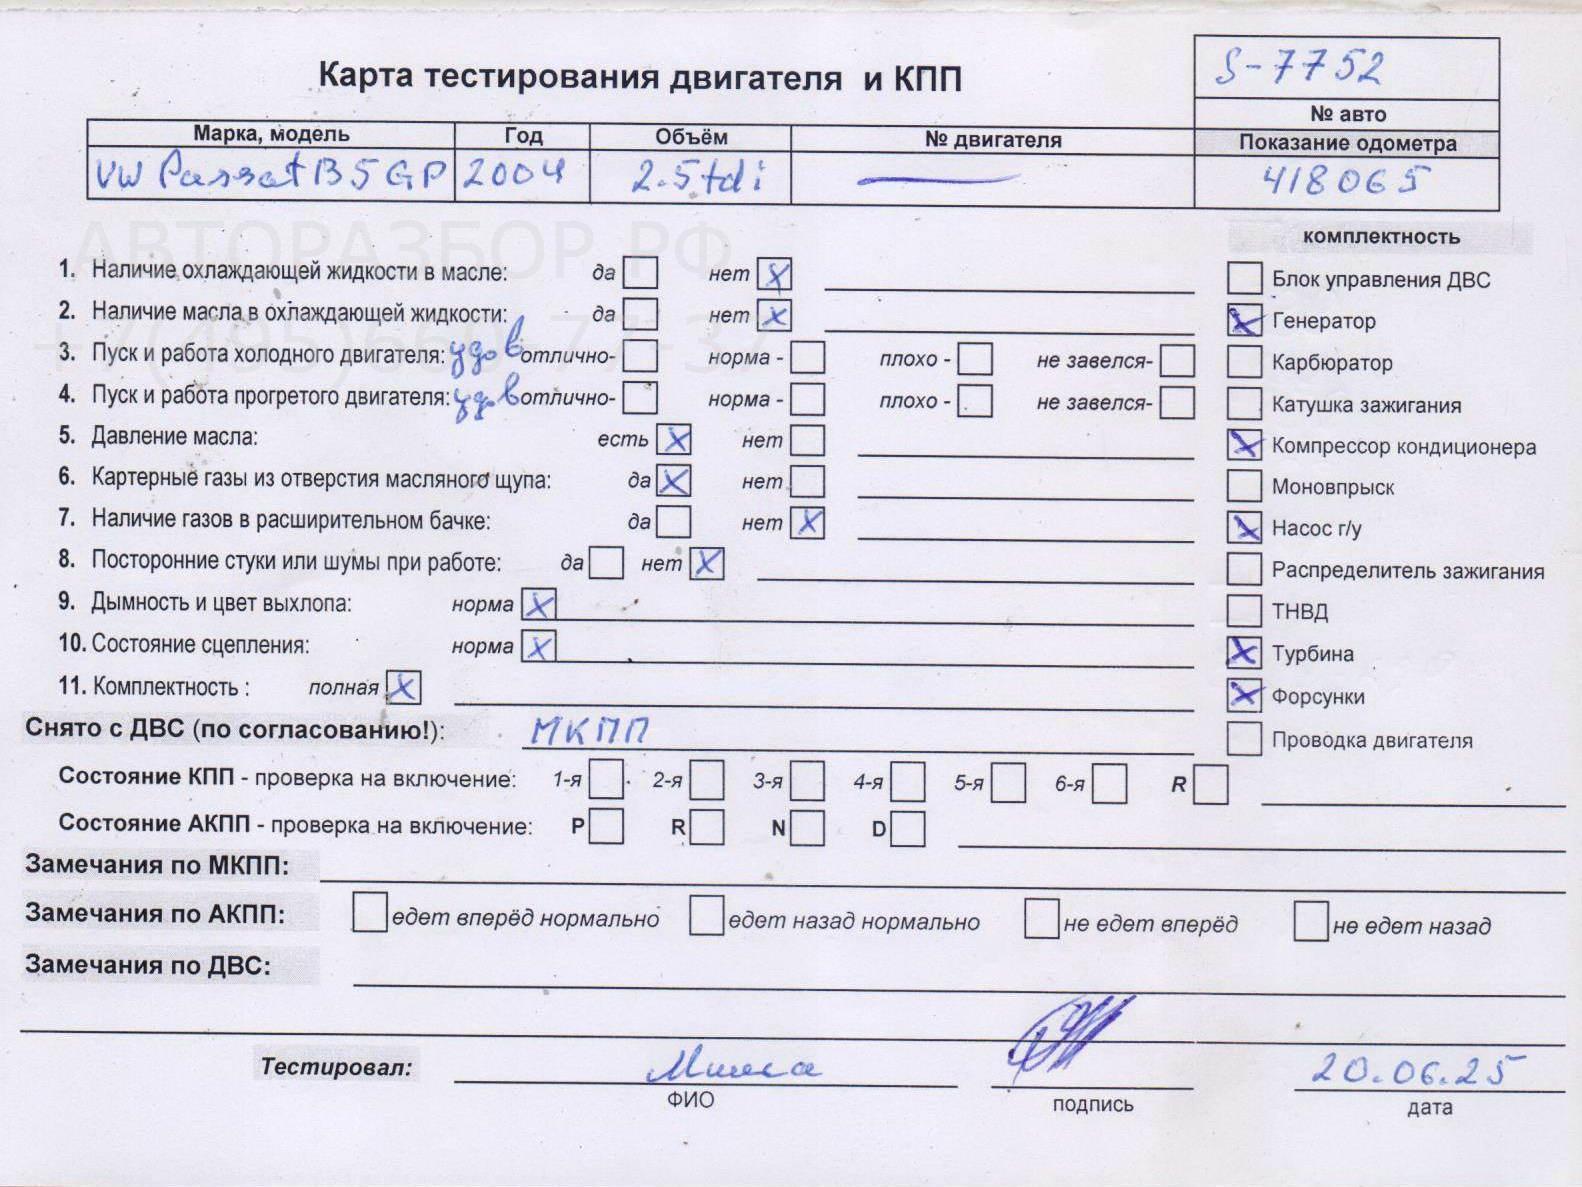 S-7752
Карта тестирования двигателя и КПП
№ авто
Марка, модель Год Объём № двигателя Показание одометра
VW Passat B5 GP 2004 2.5 tdi — 418065
АВТОРАЗБОР.РФ
комплектность
1. Наличие охлаждающей жидкости в масле: да нет X
Блок управления ДВС
2. Наличие масла в охлаждающей жидкости: да нет X
X Генератор
3. Пуск и работа холодного двигателя: удов отлично- норма - плохо - не завелся-
Карбюратор
4. Пуск и работа прогретого двигателя: удов отлично- норма - плохо - не завелся-
Катушка зажигания
5. Давление масла: есть X нет
X Компрессор кондиционера
6. Картерные газы из отверстия масляного щупа: да X нет
Моновпрыск
7. Наличие газов в расширительном бачке: да нет X
X Насос г/у
8. Посторонние стуки или шумы при работе: да нет X
Распределитель зажигания
9. Дымность и цвет выхлопа: норма X
ТНВД
10. Состояние сцепления: норма X
X Турбина
11. Комплектность : полная X
X Форсунки
Снято с ДВС (по согласованию!): МКПП
Проводка двигателя
Состояние КПП - проверка на включение: 1-я 2-я 3-я 4-я 5-я 6-я R
Состояние АКПП - проверка на включение: P R N D
Замечания по МКПП:
Замечания по АКПП: едет вперёд нормально едет назад нормально не едет вперёд не едет назад
Замечания по ДВС:
Тестировал: Миша 20.06.25
ФИО подпись дата